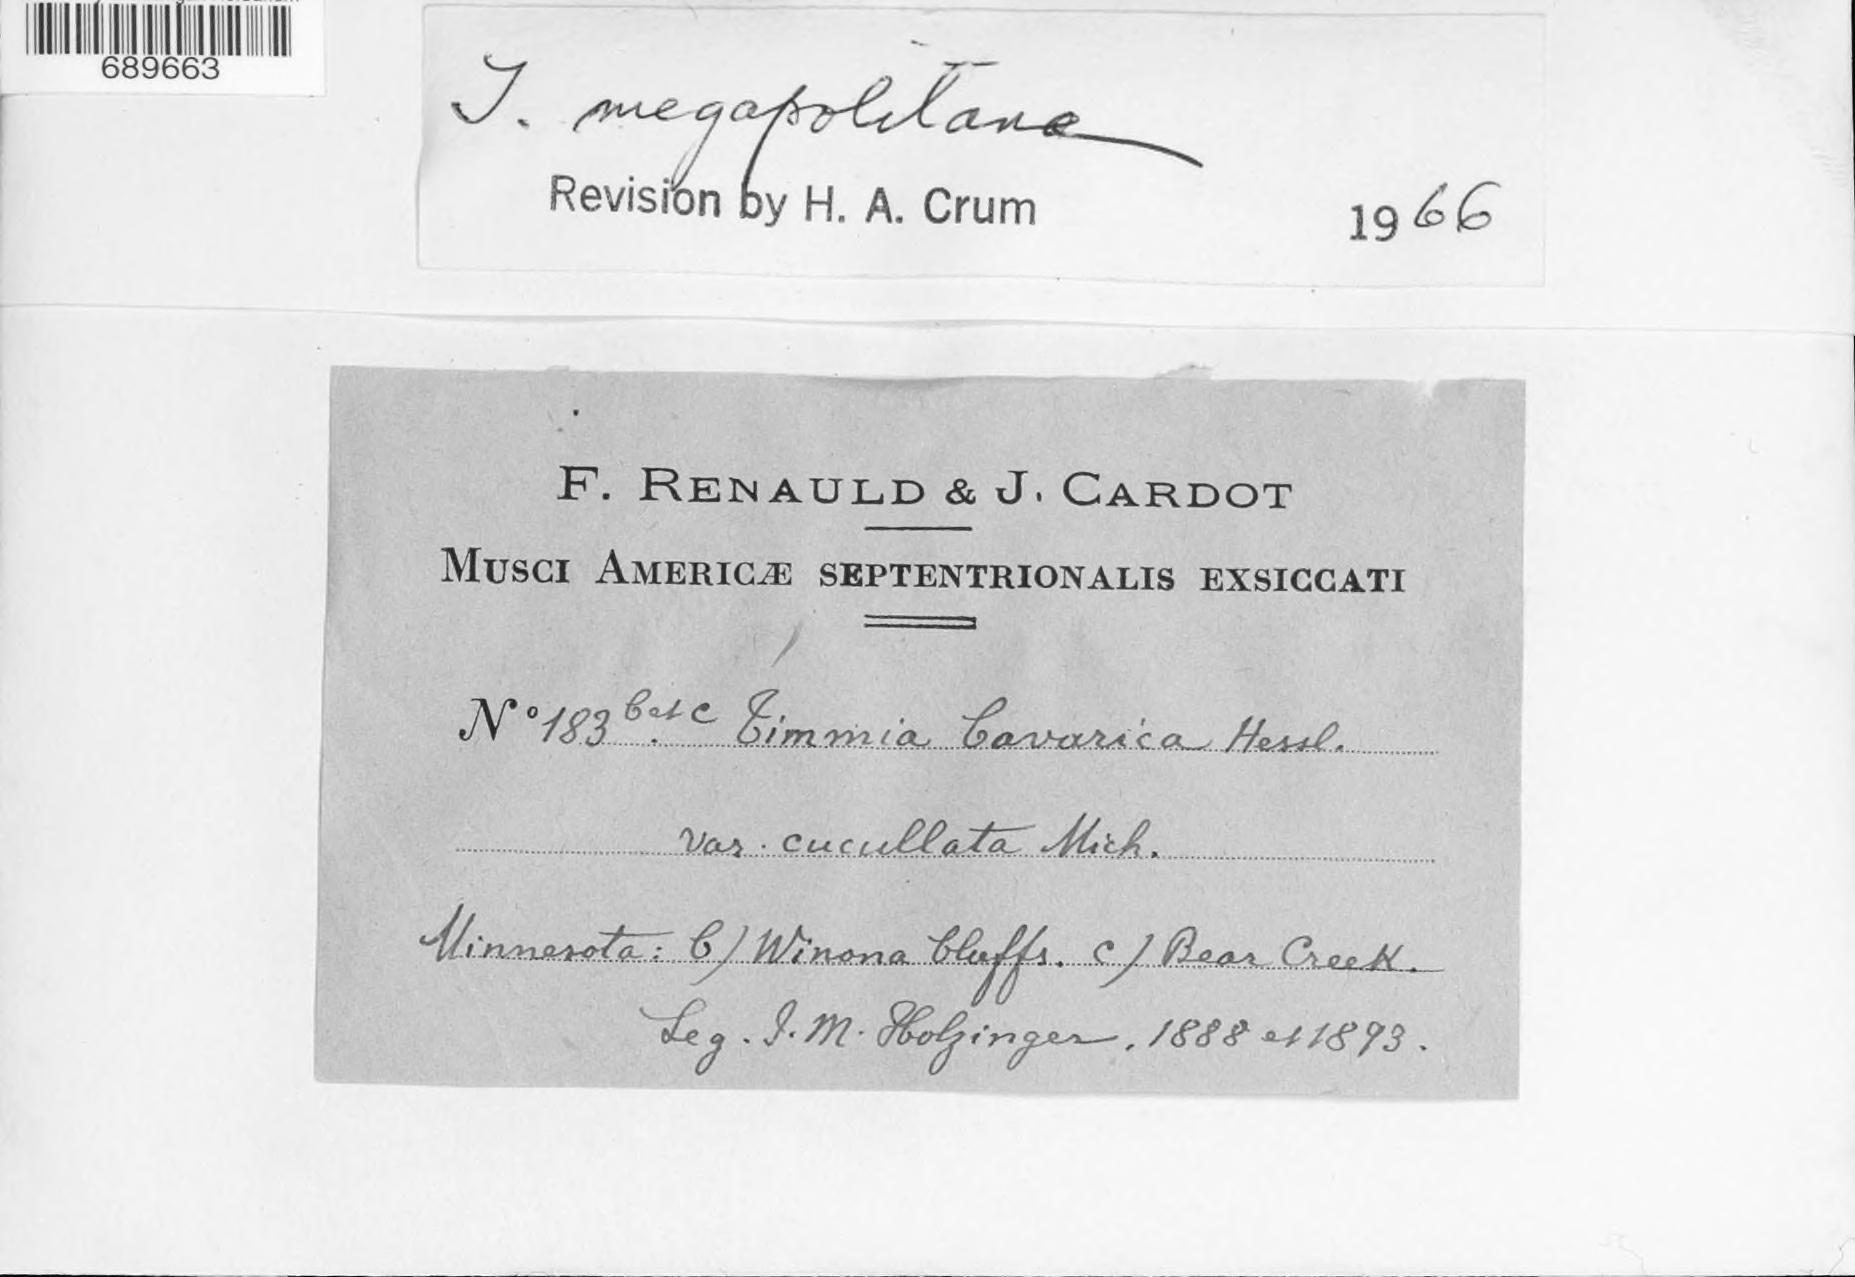 689663
T. megapolitana
Revision by H. A. Crum 1966
F. RENAULD & J. CARDOT
MUSCI AMERICÆ SEPTENTRIONALIS EXSICCATI
N° 183 b et c Timmia bavarica Hessl.
var. cucullata Mich.
Minnesota: b) Winona bluffs. c) Bear Creek.
Leg. J. M. Holzinger, 1888 et 1893.